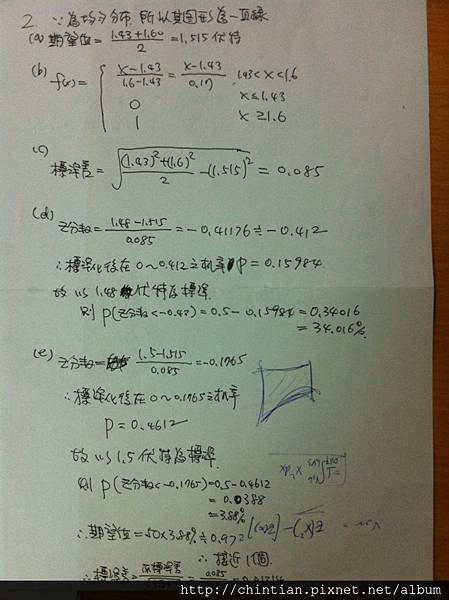 2. ∵為均勻分布, 所以其圖形為一直線
(a) 期望值 = (1.43+1.60)/2 = 1.515伏特
(b) f(x) = { (x-1.43)/(1.6-1.43) = (x-1.43)/0.17 1.43<x<1.6
0 x≤1.43
1 x≥1.6
(c)
標準差 = √((1.43)²+(1.6)²/2 -(1.515)²) = 0.085
(d)
Z分數 = (1.48-1.515)/0.085 = -0.41176 ≒ -0.412
∴標準化後在0~0.412之机率 P=0.15984.
故以1.48伏特為標準
則 P(Z分數<-0.42) = 0.5-0.15984 = 0.34016
= 34.016%
(e) Z分數 = (1.5-1.515)/0.085 = -0.1765
∴標準化後在0~0.1765之机率
P = 0.4612
故以1.5伏特為標準
則 P(Z分數<-0.1765) = 0.5-0.4612
= 0.0388
= 3.88%
∴期望值 = 50×3.88% ≒ 0.972
∴接近1個.
∴標準差 = 0.085 = 0.01214
http://chintian.pixnet.net/album